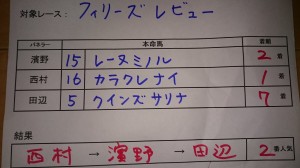 対象レース： フィリーズレビュー
パネラー 本命馬 着順
濱野 15 レーヌミノル 2着
西村 16 カラクレナイ 1着
田辺 5 クインズサリナ 7着
結果
西村 → 濱野 → 田辺 2番人気